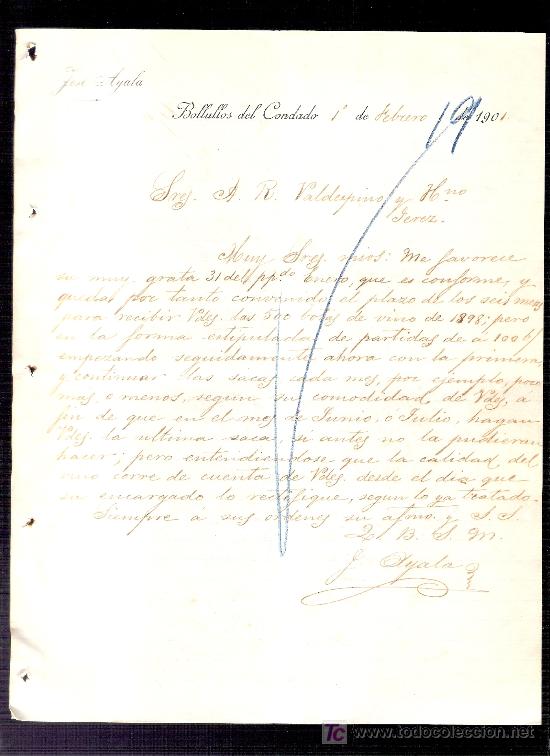 José Ayala
Bollullos del Condado 1º de Febrero de 1901.
19
Sres. A. R. Valdespino y Hno
Jerez.
Muy Sres. mios: Me favorece
su muy grata 31 del pp.do Enero, que es conforme, y
queda por tanto convenido el plazo de los seis meses
para recibir Vdes. las 500 botas de vino de 1898; pero
en la forma estipulada de partidas de á 100 b/
empezando seguidamente ahora con la primera
y continuar las sacas cada mes, por ejemplo, poco
mas ó menos, segun su comodidad, de Vdes, á
fin de que en el mes de Junio, ó Julio, hagan
Vdes. la ultima saca, si antes no la pudieran
hacer; pero entendiendose que la calidad del
vino corre de cuenta de Vdes. desde el dia que
su encargado lo rectifique, segun lo ya tratado.
Siempre á sus ordenes su afmo. y S. S.
Q. B. S. M.
J. Ayala
TC todocoleccion.net